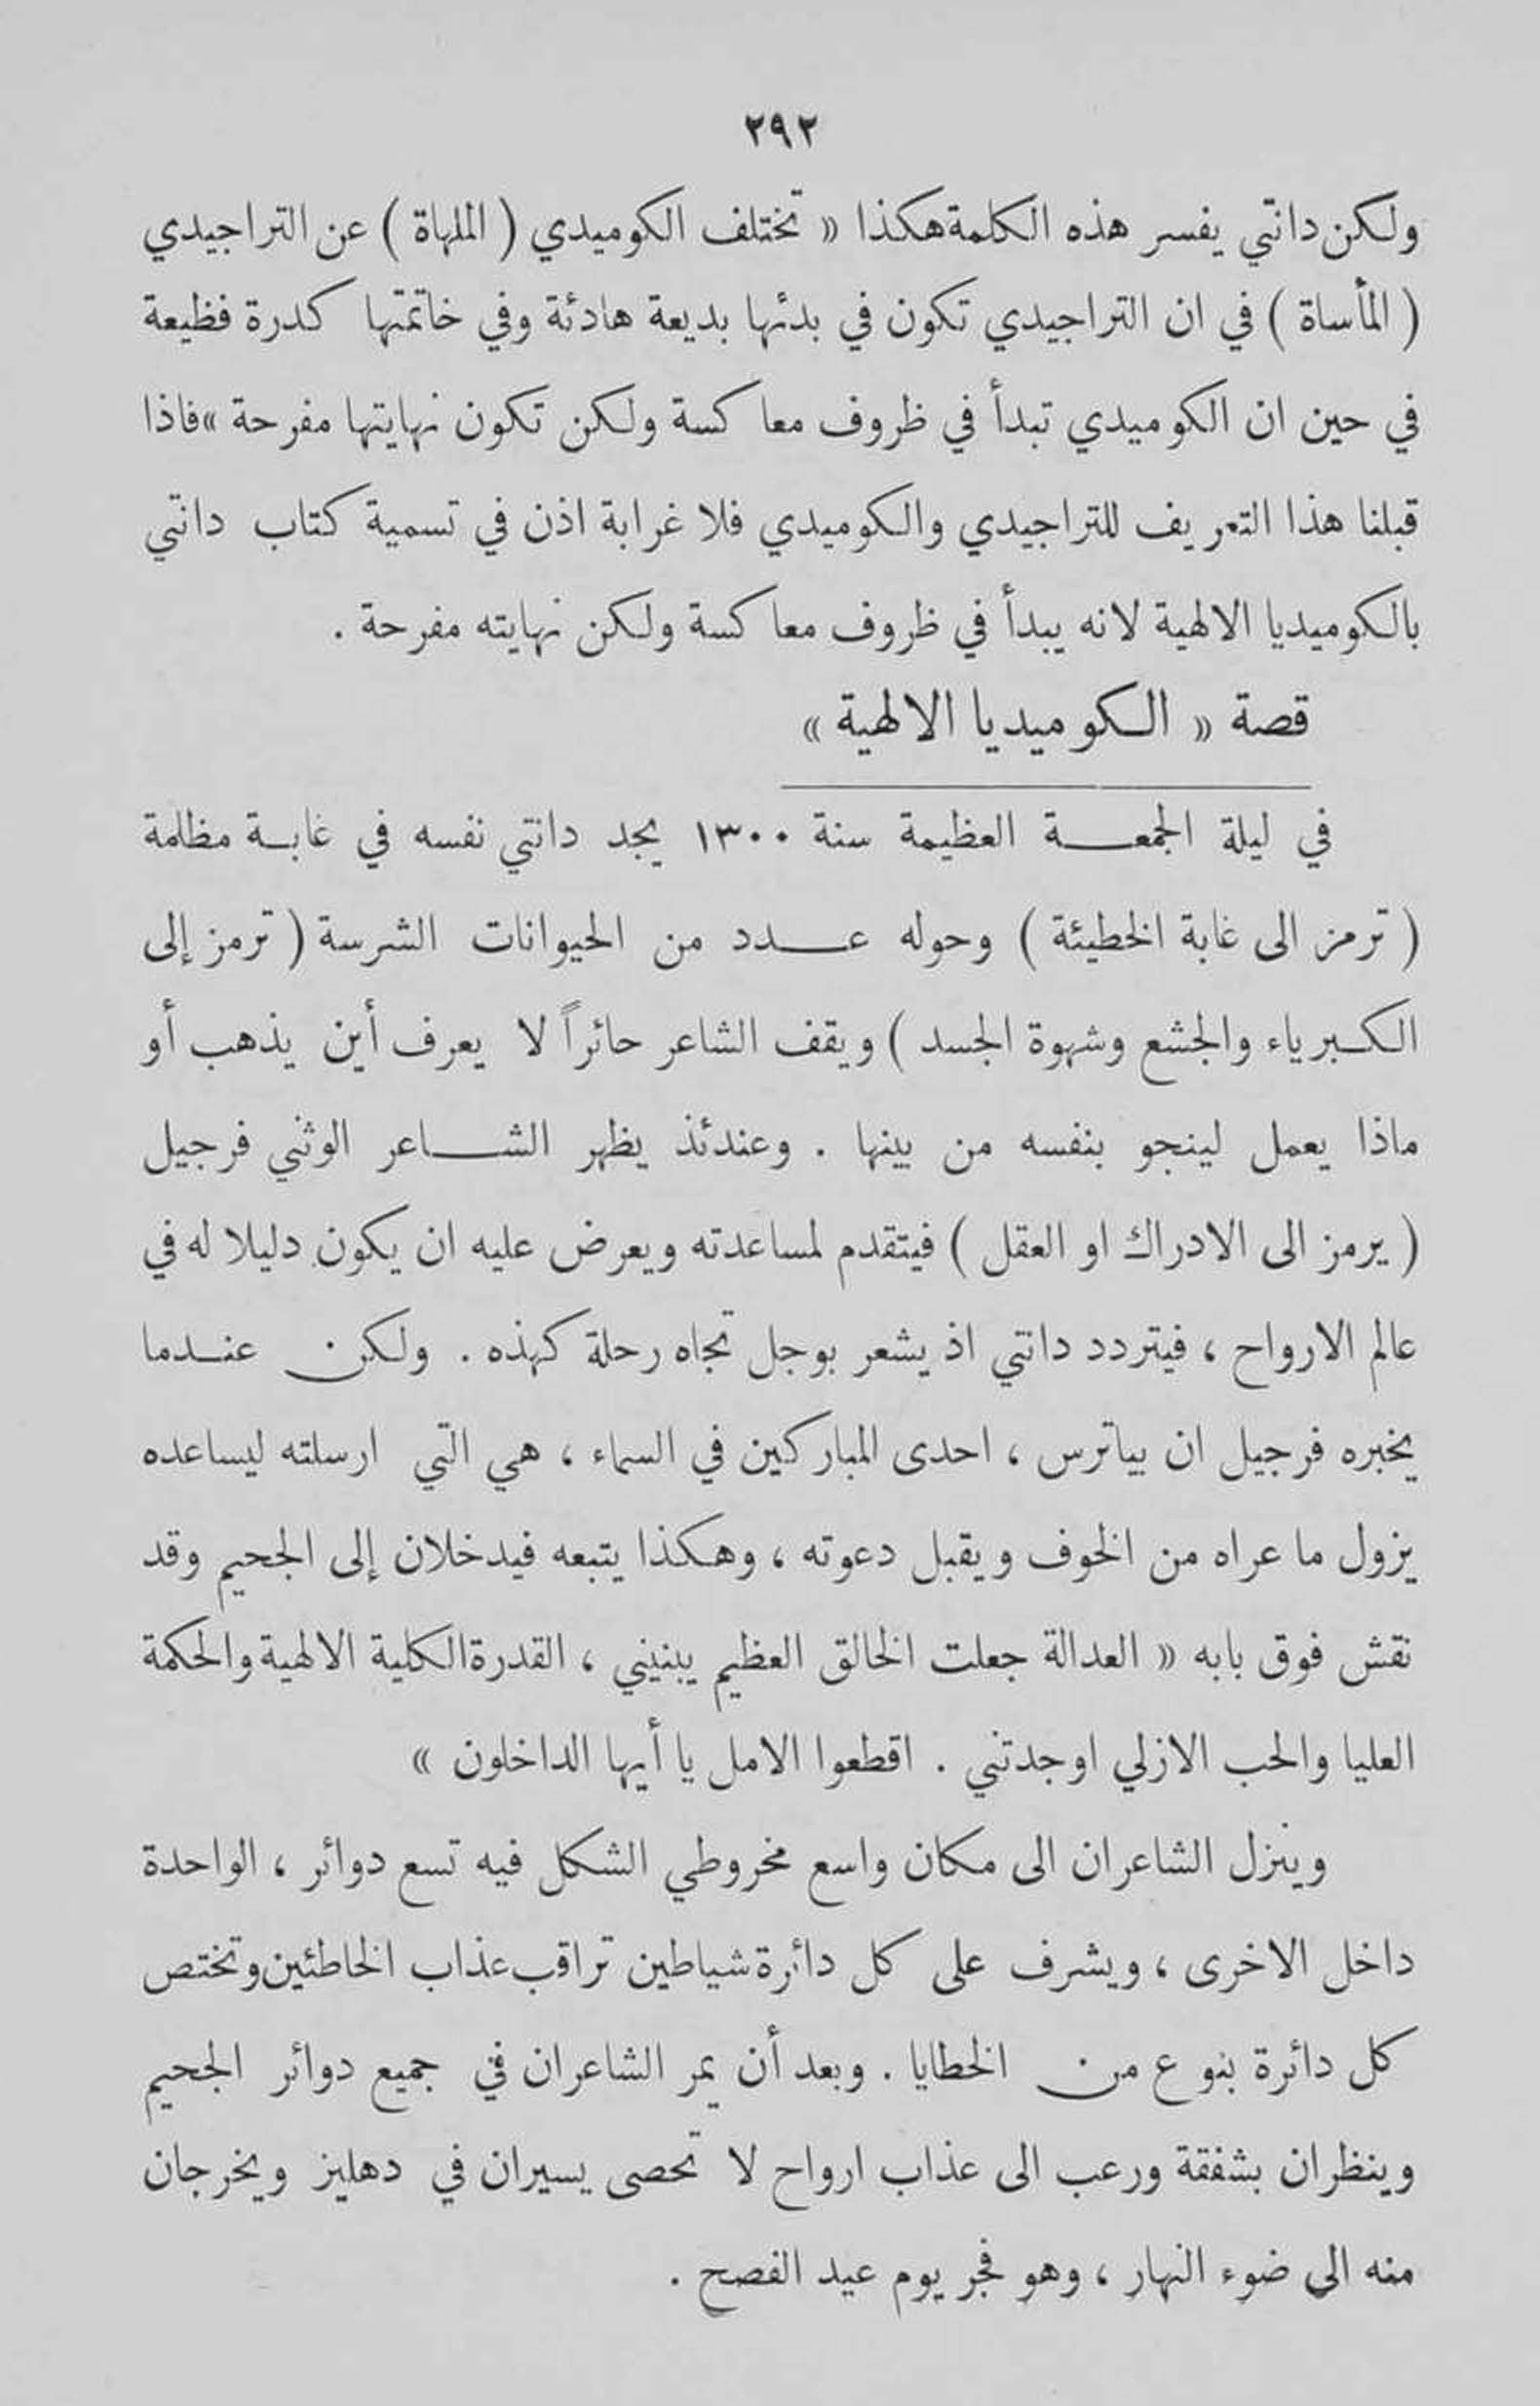 ٢٩٢
ولكن دانتي يفسر هذه الكلمة هكذا « تختلف الكوميدي ( الملهاة ) عن التراجيدي
( المأساة ) في ان التراجيدي تكون في بدئها بديعة هادئة وفي خاتمتها كدرة فظيعة
في حين ان الكوميدي تبدأ في ظروف معاكسة ولكن تكون نهايتها مفرحة » فاذا
قبلنا هذا التعريف للتراجيدي والكوميدي فلا غرابة اذن في تسمية كتاب دانتي
بالكوميديا الالهية لانه يبدأ في ظروف معاكسة ولكن نهايته مفرحة .
قصة « الكوميديا الالهية »
في ليلة الجمعة العظيمة سنة ١٣٠٠ يجد دانتي نفسه في غابة مظلمة
( ترمز الى غابة الخطيئة ) وحوله عدد من الحيوانات الشرسة ( ترمز إلى
الكبرياء والجشع وشهوة الجسد ) ويقف الشاعر حائراً لا يعرف أين يذهب أو
ماذا يعمل لينجو بنفسه من بينها . وعندئذ يظهر الشاعر الوثني فرجيل
( يرمز الى الادراك او العقل ) فيتقدم لمساعدته ويعرض عليه ان يكون دليلا له في
عالم الارواح ، فيتردد دانتي اذ يشعر بوجل تجاه رحلة كهذه . ولكن عندما
يخبره فرجيل ان بياترس ، احدى المباركين في السماء ، هي التي ارسلته ليساعده
يزول ما عراه من الخوف ويقبل دعوته ، وهكذا يتبعه فيدخلان إلى الجحيم وقد
نقش فوق بابه « العدالة جعلت الخالق العظيم يبنيني ، القدرة الكلية الالهية والحكمة
العليا والحب الازلي اوجدتني . اقطعوا الامل يا أيها الداخلون »
وينزل الشاعران الى مكان واسع مخروطي الشكل فيه تسع دوائر ، الواحدة
داخل الاخرى ، ويشرف على كل دائرة شياطين تراقب عذاب الخاطئين وتختص
كل دائرة بنوع من الخطايا . وبعد أن يمر الشاعران في جميع دوائر الجحيم
وينظران بشفقة ورعب الى عذاب ارواح لا تحصى يسيران في دهليز ويخرجان
منه الى ضوء النهار ، وهو فجر يوم عيد الفصح .